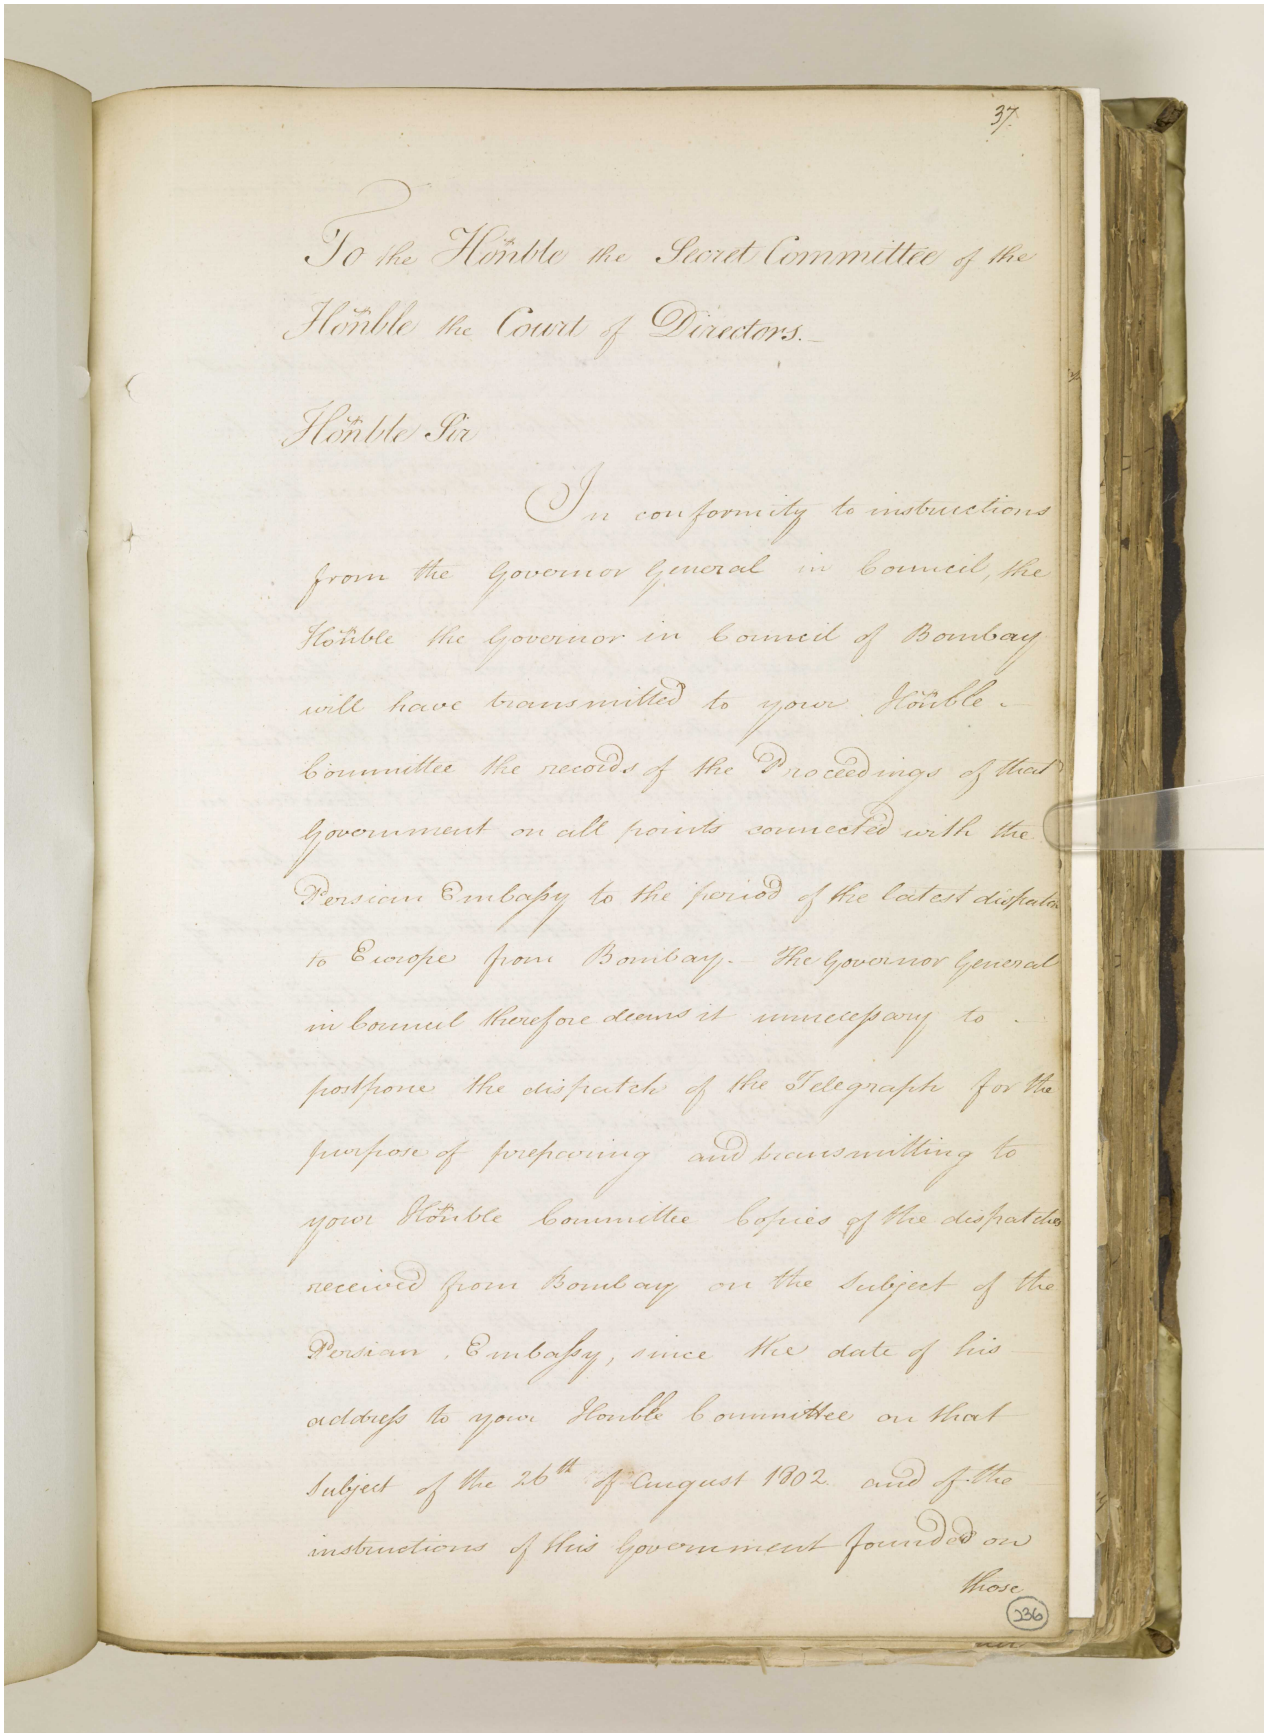 37.
To the Hon'ble the Secret Committee of the
Hon'ble the Court of Directors.—
Hon'ble Sir
In conformity to instructions
from the Governor General in Council, the
Hon'ble the Governor in Council of Bombay
will have transmitted to your Hon'ble
Committee the records of the Proceedings of that
Government on all points connected with the
Persian Embaſsy to the period of the latest dispatch
to Europe from Bombay. The Governor General
in Council therefore deems it unneceſsary to
postpone the dispatch of the Telegraph for the
purpose of preparing and transmitting to
your Hon'ble Committee Copies of the dispatches
received from Bombay on the Subject of the
Persian Embaſsy, since the date of his
addreſs to your Honble Committee on that
Subject of the 26th of August 1802. and of the
instructions of this Government founded on
those
236